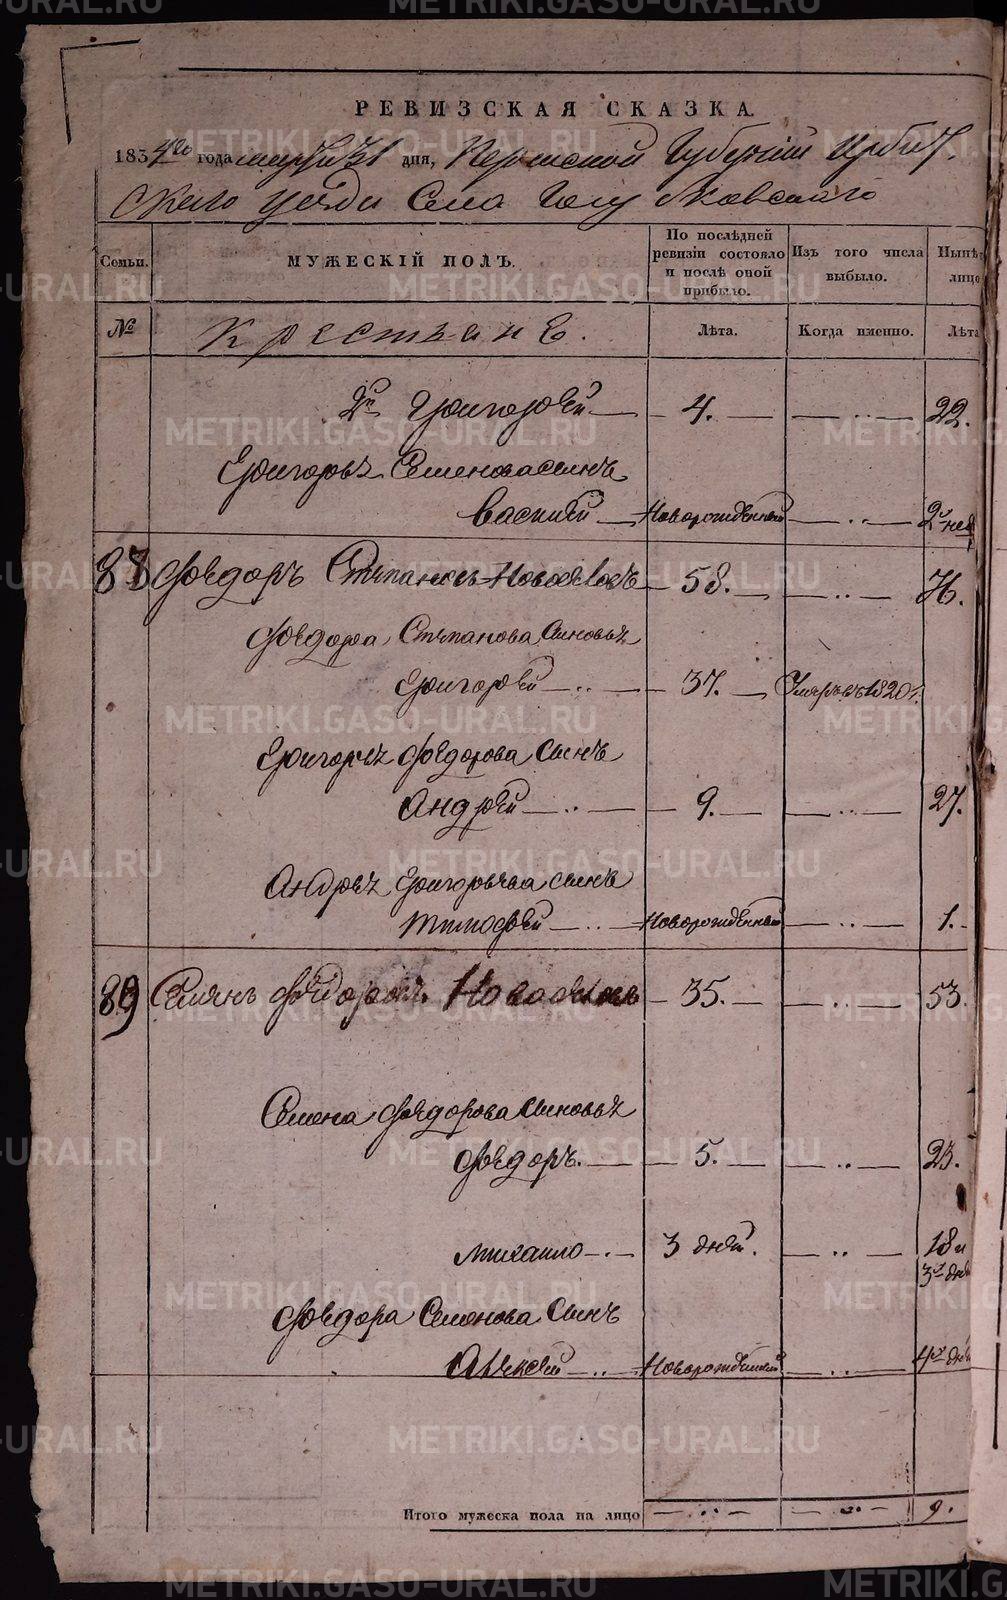 РЕВИЗСКАЯ СКАЗКА.
1834го года марта 31 дня, Пермской Губерніи Ирбит
скаго уезда Села
Семьи. МУЖЕСКІЙ ПОЛЪ. По послѣдней ревизіи состояло и послѣ оной прибыло. Изъ того числа выбыло. Нынѣ лицо
№ Крестьяне. Лѣта. Когда именно. Лѣта
2й Григорей 4. 22.
Григорья Семенова сынъ
Василей Новорожденный 2 нед
88 Федоръ Степановъ Новоселовъ 58. 76.
Федора Степанова Сыновья
Григорей 37. Умеръ въ 1820 г.
Григорья Федорова Сынъ
Андрей 9. 27.
Андрея Григорьева сынъ
Тимофей Новорожденный 1.
89 Семенъ Федоровъ Новоселовъ 35. 53.
Семена Федорова Сыновья
Федоръ. 5. 23.
Михаило 3 дней. 18 и
3 дня
Федора Семенова Сынъ
Алексей Новорожденный 4 дня
Итого мужеска пола на лицо 9.
METRIKI.GASO-URAL.RU